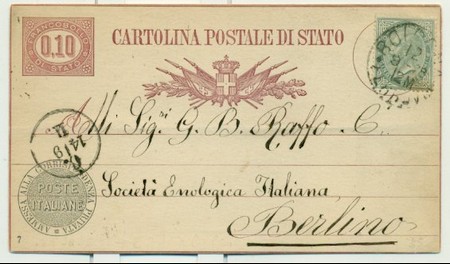 FRANCOBOLLO
0.10
DI STATO
CARTOLINA POSTALE DI STATO
Alli Sigri G. B. Raffo e C.
14/9
II
AMMESSA ALLA CORRISPONDENZA PRIVATA
POSTE
ITALIANE
Società Enologica Italiana
Berlino
7